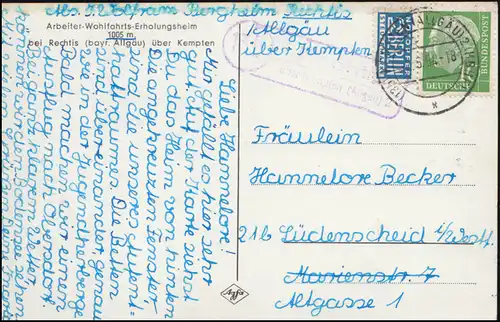 Abs. I. Wolfram Bergheim Rechtis
Allgäu
über Kempten
Arbeiter-Wohlfahrts-Erholungsheim
1005 m,
bei Rechtis (bayr. Allgäu) über Kempten
NOTOPFER
2 BERLIN
STEUERMARKE
DEUTSCHE BUNDESPOST
Liebe Hannelore!
Mir gefällt es hier sehr
gut. Auf der Karte siehst
Du das Heim von hinten.
Die angekreuzten Fenster,
die sind unseres
Die Betten
übereinander, genau
wie in der Jugendherberge.
Bald machen wir einen
Ausflug nach Oberstdorf.
Bei ganz klarem Wetter
können wir den Bodensee sehen.
Fräulein
Hannelore Becker
21b Lüdenscheid i/Westf.
Marienstr. 7
Altgasse 1
Agfa